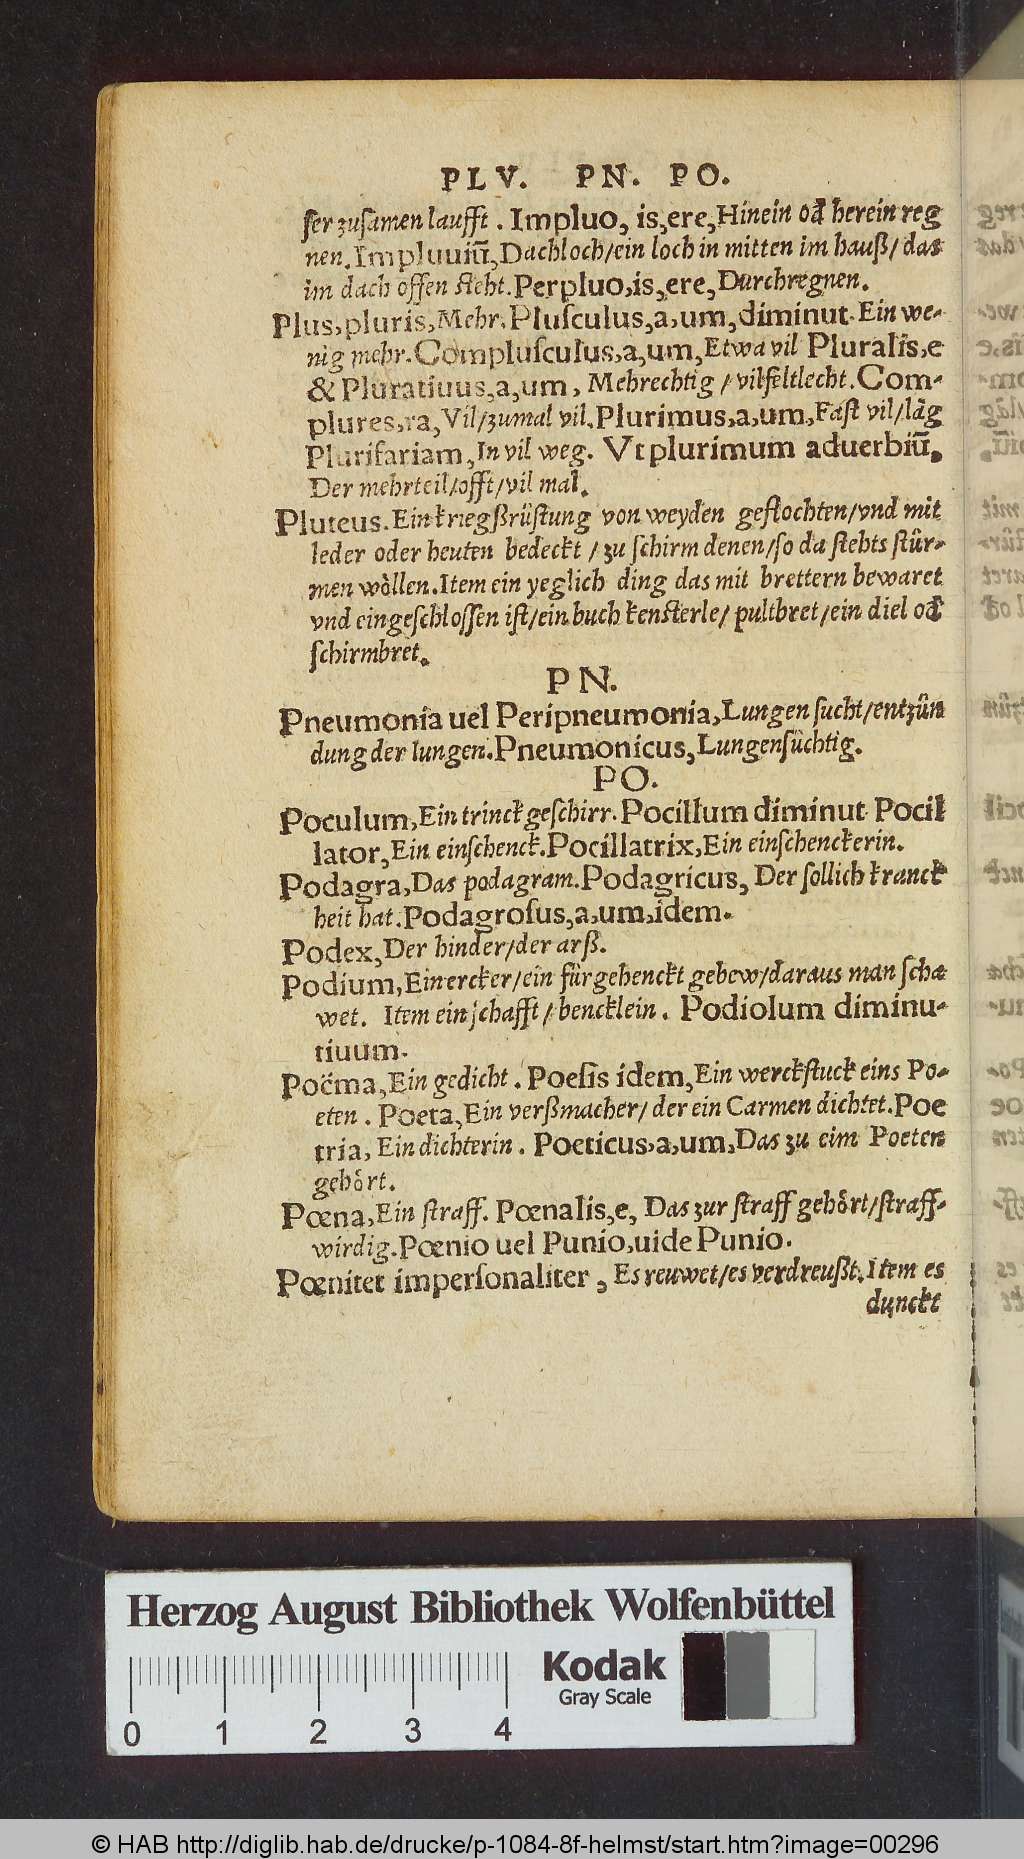 PLV. PN. PO.
ſer zuſamen laufft. Impluo, is, ere, Hinein od̃ herein reg
nen. Impluuiū, Dachloch/ein loch in mitten im hauß/das
im dach offen ſteht. Perpluo, is, ere, Durchregnen.
Plus, pluris, Mehr. Pluſculus, a, um, diminut. Ein we-
nig mehr. Compluſculus, a, um, Etwa vil Pluralis, e
& Pluratiuus, a, um, Mehrechtig/vilfeltlecht. Com-
plures, ra, Vil/zumal vil. Plurimus, a, um, Faſt vil/lãg
Plurifariam, In vil weg. Vt plurimum aduerbiū.
Der mehrteil/offt/vil mal.
Pluteus. Ein kriegßrüſtung von weyden geflochten/vnd mit
leder oder heuten bedeckt/zu ſchirm denen/ſo da ſtehts ſtür-
men wöllen. Item ein yeglich ding das mit brettern bewaret
vnd eingeſchloſſen iſt/ein buch kenſterle/pultbret/ein diel od̃
ſchirmbret.
PN.
Pneumonia uel Peripneumonia, Lungen ſucht/entzün
dung der lungen. Pneumonicus, Lungenſüchtig.
PO.
Poculum, Ein trinck geſchirr. Pocillum diminut. Pocil
lator, Ein einſchenck. Pocillatrix, Ein einſchenckerin.
Podagra, Das podagram. Podagricus, Der ſollich kranck
heit hat. Podagroſus, a, um, idem.
Podex, Der hinder/der arß.
Podium, Ein ercker/ein fürgehenckt gebew/daraus man ſcha
wet. Item ein ſchafft/bencklein. Podiolum diminu-
tiuum.
Poëma, Ein gedicht. Poeſis idem, Ein werckſtuck eins Po-
eten. Poeta, Ein verßmacher/der ein Carmen dichtet. Poe
tria, Ein dichterin. Poeticus, a, um, Das zu eim Poeten
gehört.
Pœna, Ein ſtraff. Pœnalis, e, Das zur ſtraff gehört/ſtraff-
wirdig. Pœnio uel Punio, uide Punio.
Pœnitet imperſonaliter, Es reuwet/es verdreußt. Item es
dunckt
Herzog August Bibliothek Wolfenbüttel
Kodak
Gray Scale
0 1 2 3 4
© HAB http://diglib.hab.de/drucke/p-1084-8f-helmst/start.htm?image=00296